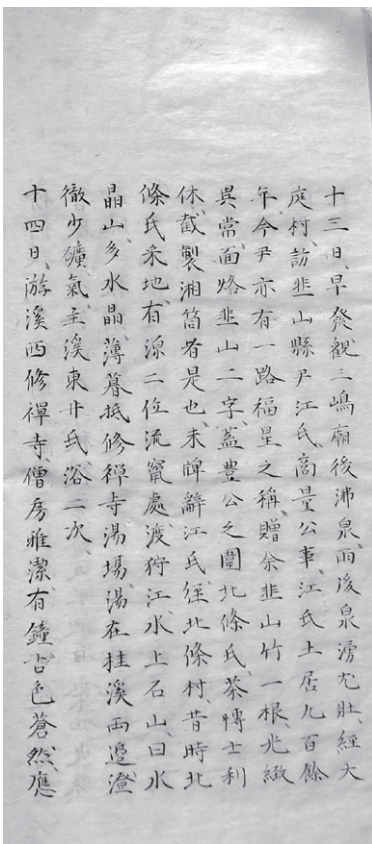 十三日早發、觀三嶋廟後沸泉、雨後泉湧尤壯、經大
庭村、訪韭山縣尹江氏、商量公事、江氏土居九百餘
年、今尹亦有一路福星之稱、贈余韭山竹一根、光緻
異常、面烙韭山二字、蓋豐公之圍北條氏、茶博士利
休截製湘筒者是也、未牌辭江氏、徑北條村、昔時北
條氏采地、有源二位流竄處、渡狩江水上石山、曰水
晶山、多水晶、薄暮抵修禅寺湯場、湯在桂溪兩邉、澄
徹少礦氣、主溪東井氏浴二次、
十四日、游溪西修禪寺、僧房雅潔、有鐘、古色蒼然、應